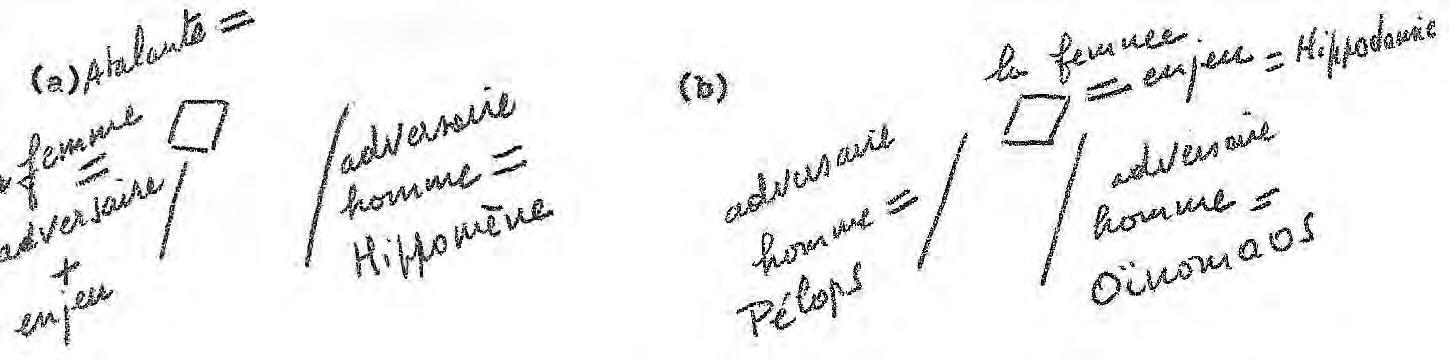 (a) Atalante =
femme
=
adversaire
+
enjeu
adversaire
homme =
Hippomène
(b)
la femme.
= enjeu = Hippodamie
adversaire
homme =
Pélops
adversaire
homme =
Oïnomaos